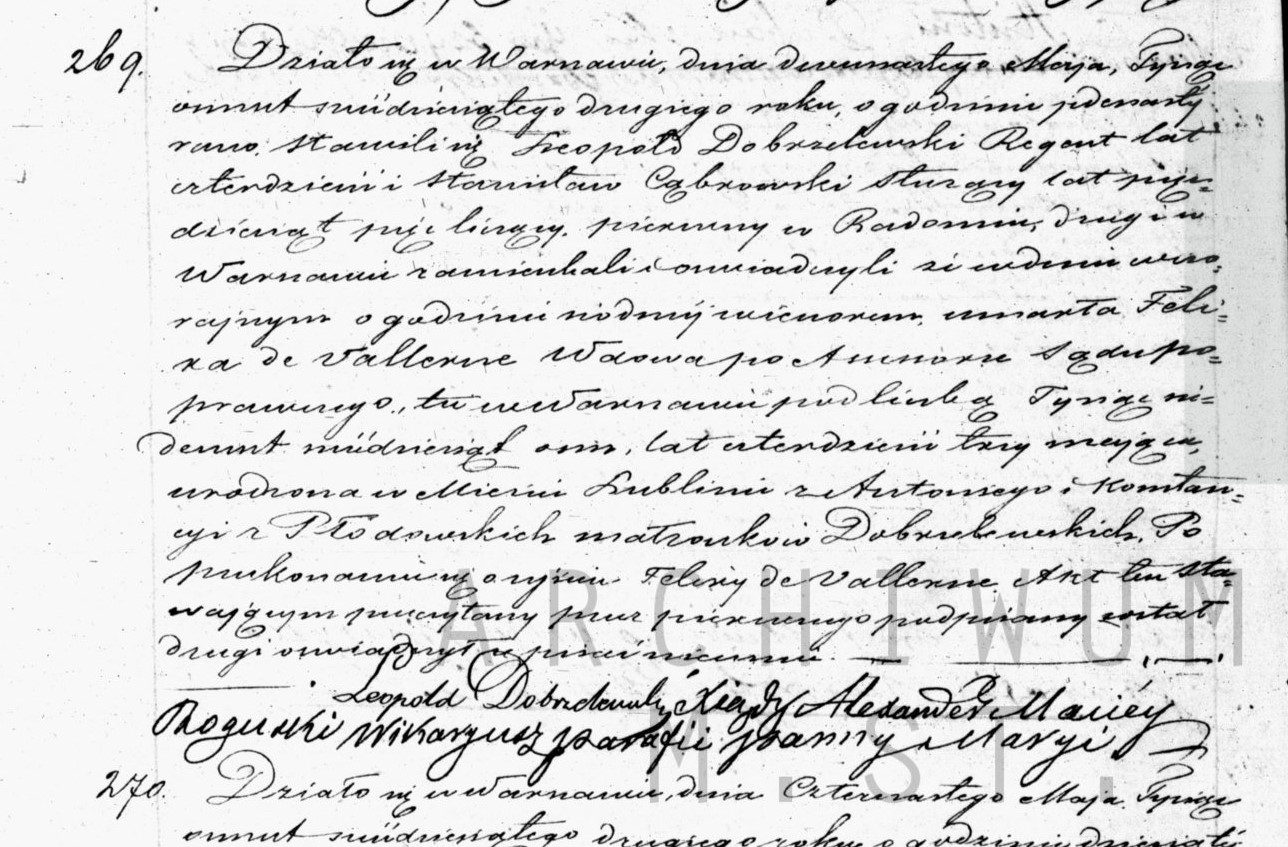 269. Działo się w Warszawie, dnia dwunastego Maja, Tysiąc
ośmset sześćdziesiątego drugiego roku, o godzinie jedenastej
rano. Stawili się Leopold Dobrzelewski Regent lat
czterdzieści i Stanisław Cąbrowski służący lat pięć=
dziesiąt pięć liczący, pierwszy w Radomiu, drugi w
Warszawie zamieszkali i oświadczyli że w dniu wczo=
rajszym o godzinie siódmej wieczorem, umarła Feli=
xa de Vallerne Wdowa po Assesorze Sądu po=
prawczego, tu w Warszawie pod liczbą Tysiąc sie=
demset sześćdziesiąt ośm, lat czterdzieści trzy mająca,
urodzona w Mieście Lublinie z Antoniego i Konstan=
cyi z Płodowskich małżonków Dobrzelewskich. Po
przekonaniu się o zejściu Felixy de Vallerne Akt ten sta=
wającym przeczytany przez pierwszego podpisany został
drugi oświadczył że pisać nieumie.
Leopold Dobrzelewski, Xiądz Alexander Maciéy
Roguski Wikaryusz parafii Panny Maryi
ARCHIWUM
M. ST.
270. Działo się w Warszawie, dnia Czternastego Maja, Tysiąc
ośmset sześćdziesiątego drugiego roku o godzinie dziesiątej